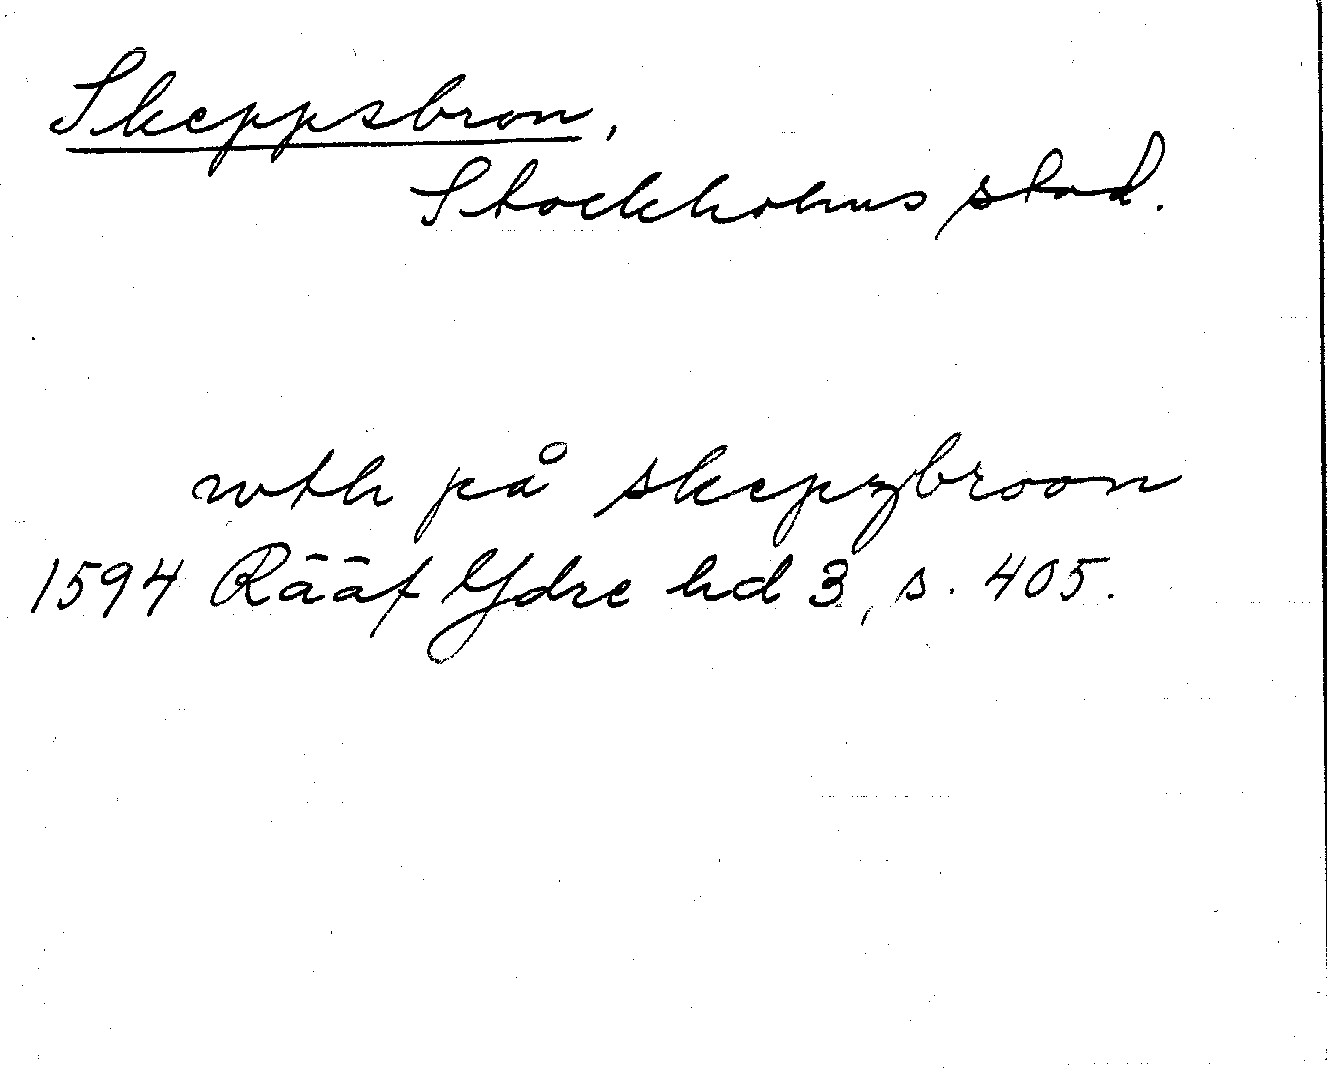 Skeppsbron,
Stockholms stad.
wth på skepzbroon
1594 Rääf Ydre hd 3, s. 405.